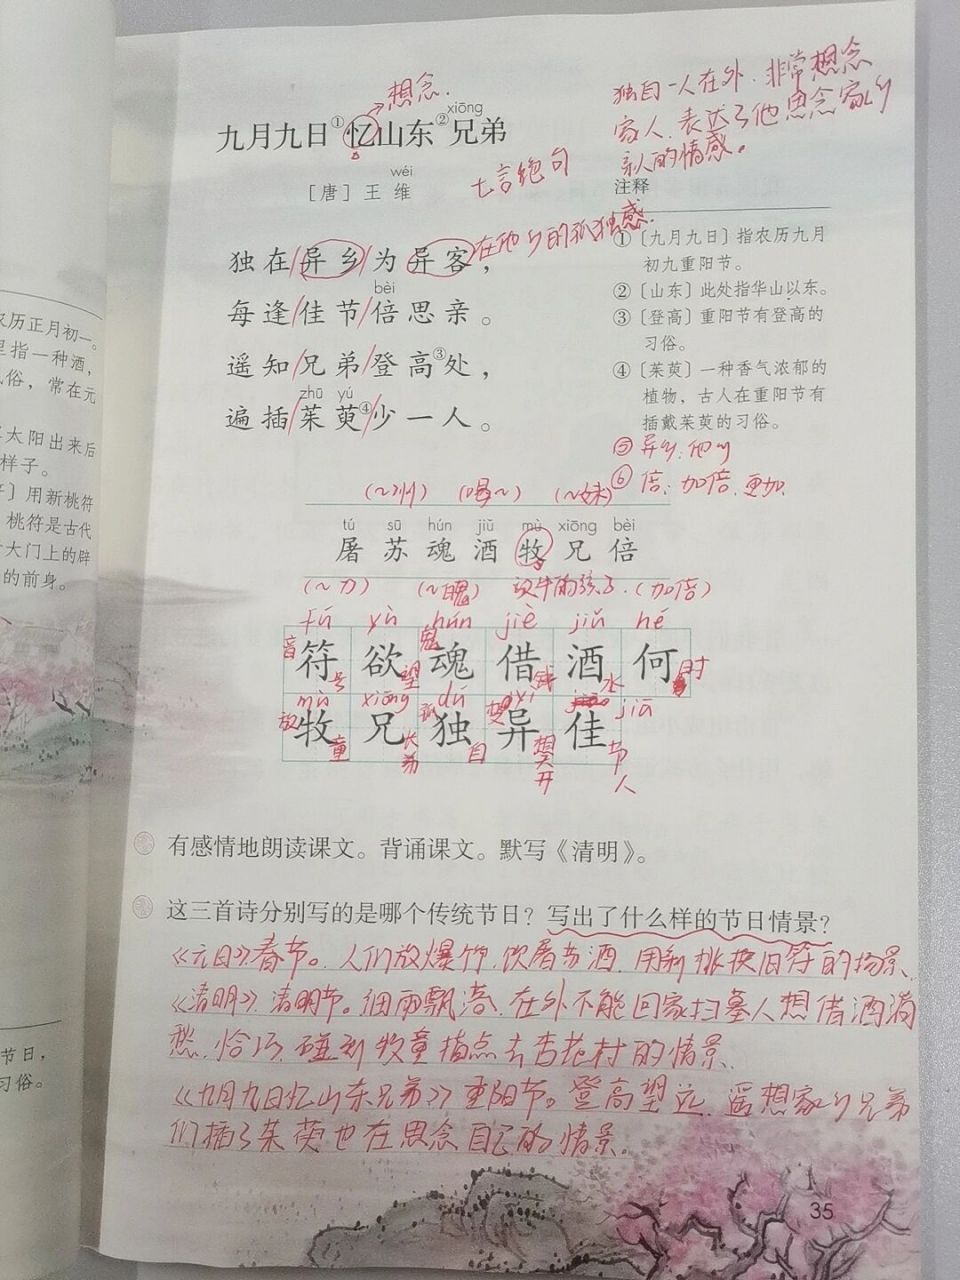 想念.
xiōng
九月九日①忆山东②兄弟
wéi
［唐］王 维
七言绝句
独自一人在外.非常想念
家人.表达了他思念家乡
亲人的情感。
注释
独在/异乡/为异客，
在他乡的孤独感.
bèi
每逢/佳节/倍思亲。
遥知/兄弟/登高③处，
zhū yú
遍插/茱萸④/少一人。
①〔九月九日〕指农历九月
初九重阳节。
②〔山东〕此处指华山以东。
③〔登高〕重阳节有登高的
习俗。
④〔茱萸〕一种香气浓郁的
植物，古人在重阳节有
插戴茱萸的习俗。
⑤ 异乡:他乡
⑥ 倍:加倍.更加.
(～州) (喝～) (～妹)
tú sū hún jiǔ mù xiōng bèi
屠 苏 魂 酒 牧 兄 倍
(～力) 放牛的孩子.(加倍)
fú yù hún jiè jiǔ hé
符 欲 魂 借 酒 何
音 号 望 鬼 钱 水 时
mù xiōng dú yì jiā
牧 兄 独 异 佳
放 童 长 弟 孤 自 想天开 节 人
有感情地朗读课文。背诵课文。默写《清明》。
这三首诗分别写的是哪个传统节日？写出了什么样的节日情景？
《元日》春节。人们放爆竹.饮屠苏酒.用新桃换旧符的场景.
《清明》清明节。细雨飘落.在外不能回家扫墓人想借酒消
愁.恰巧.碰到牧童指点去杏花村的情景.
《九月九日忆山东兄弟》重阳节。登高望远.遥想家乡兄弟
们插了茱萸也在思念自己的情景。
35
农历正月初一。
里指一种酒，
风俗，常在元
太阳出来后
样子。
〕用新桃符
桃符是古代
大门上的辟
的前身。
节日，
习俗。